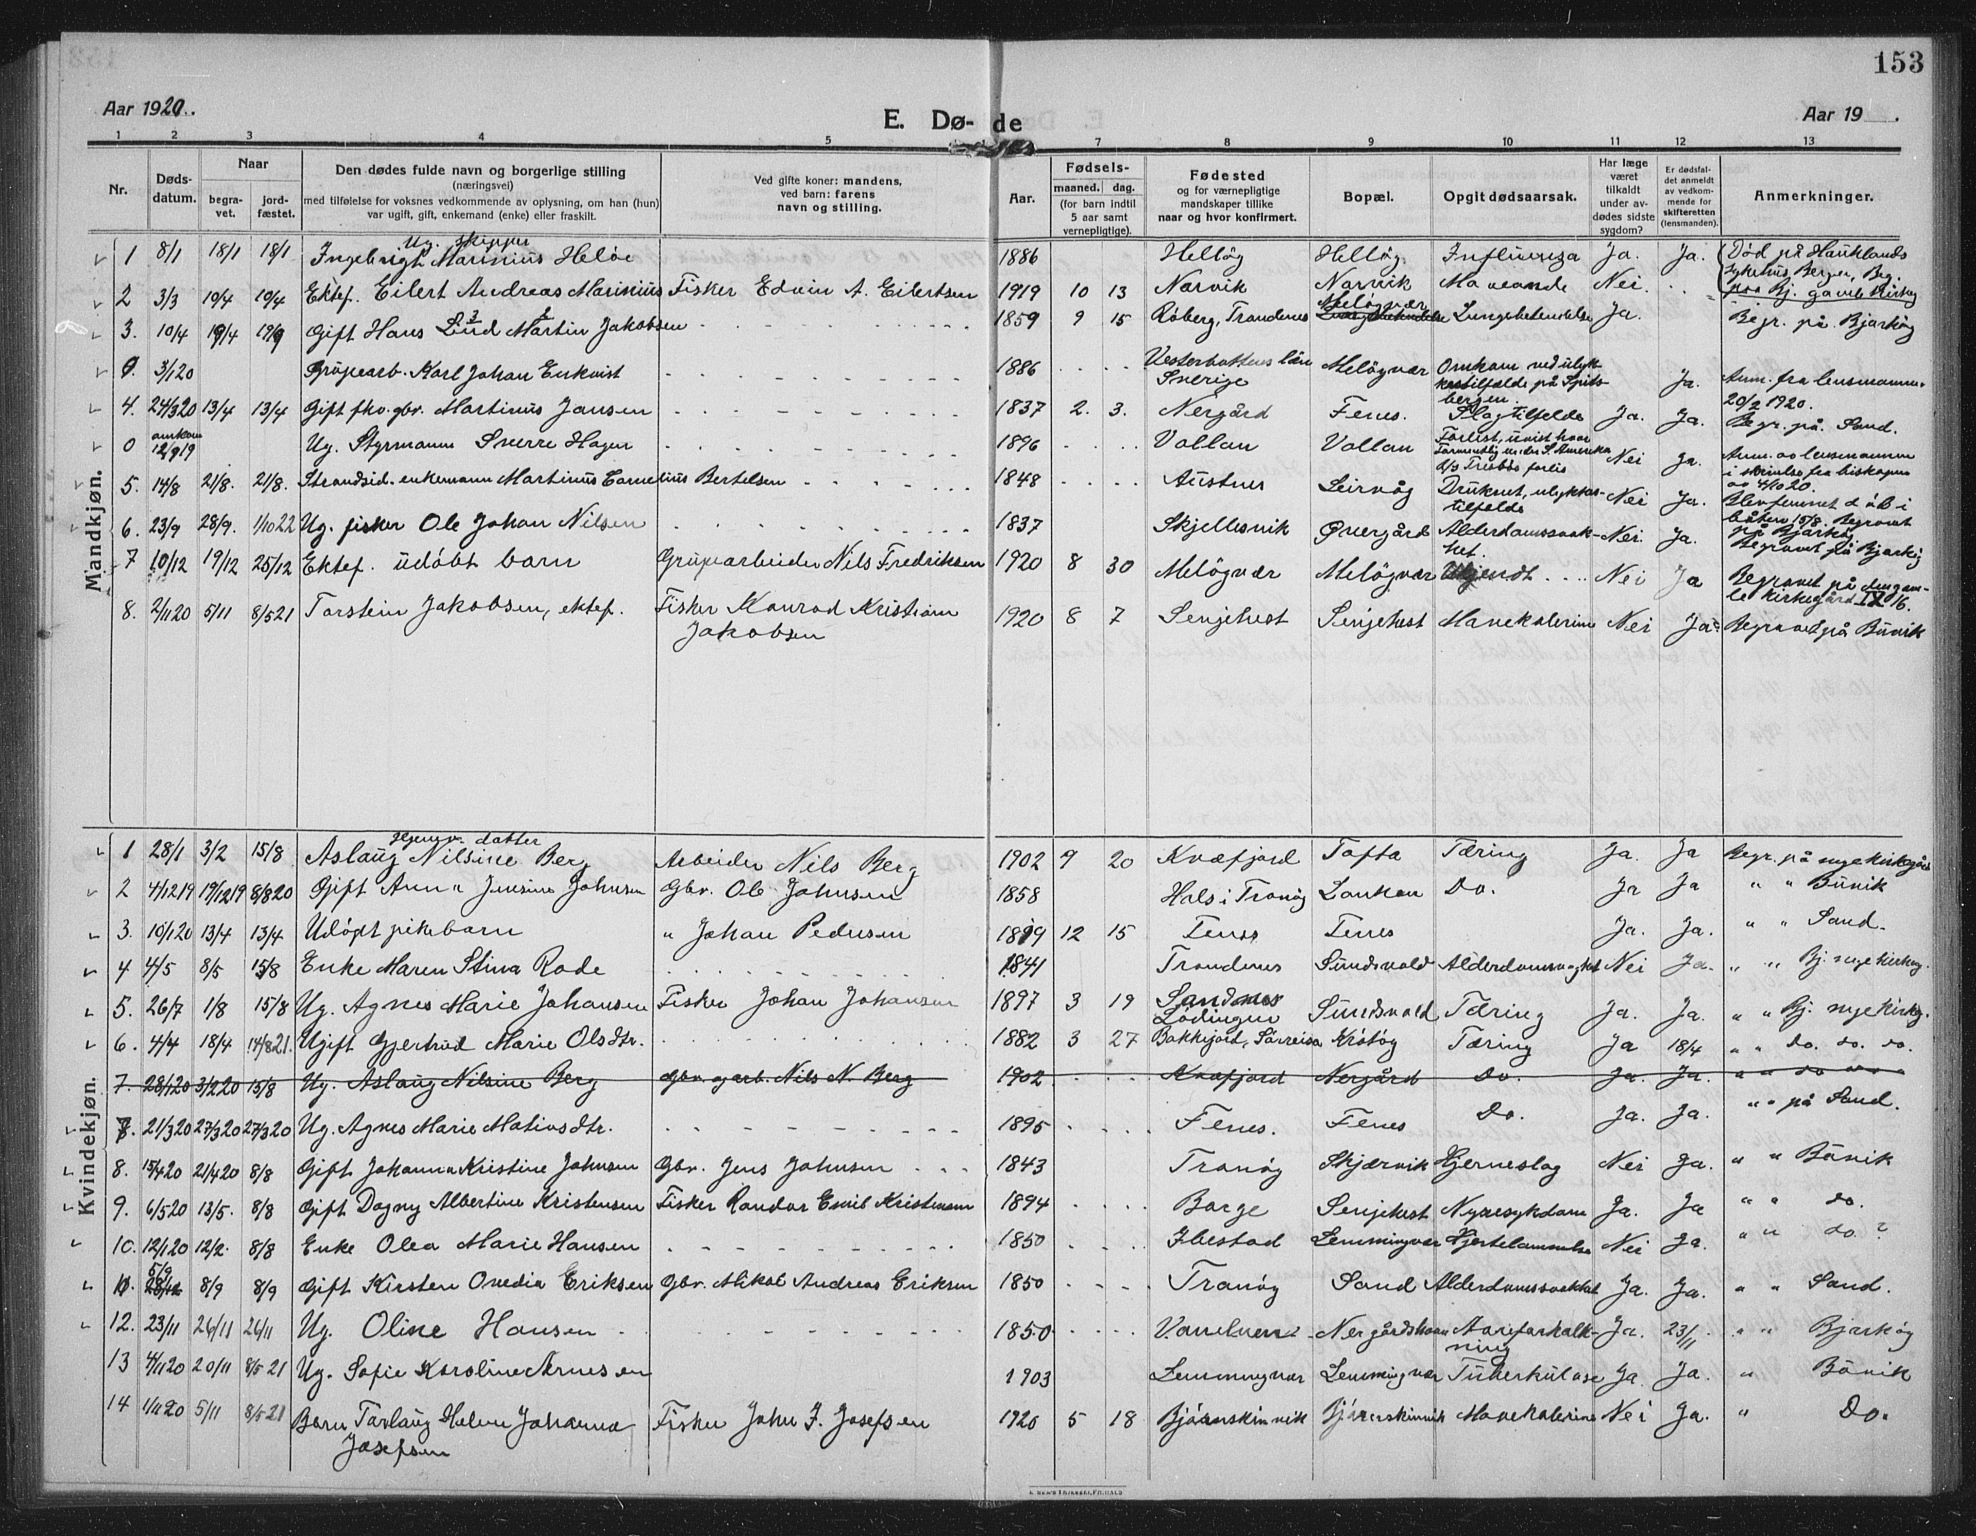 153
Aar 1920.
E. Dø- de
Aar 19 .
1 2 3 4 5 7 8 9 10 11 12 13
Nr.
Døds-
datum.
Naar
begra-
vet.
jord-
fæstet.
Den dødes fulde navn og borgerlige stilling
(næringsvei)
med tilføielse for voksnes vedkommende av oplysning, om han (hun)
var ugift, gift, enkemand (enke) eller fraskilt.
Ved gifte koner: mandens,
ved barn: farens
navn og stilling.
Fødsels-
Aar.
maaned. dag.
(for barn indtil
5 aar samt
vernepligtige).
Fødested
og for værnepligtige
mandskaper tillike
naar og hvor konfirmert.
Bopæl.
Opgit dødsaarsak.
Har læge
været
tilkaldt
under av-
dødes sidste
sygdom?
Er dødsfal-
det anmeldt
av vedkom-
mende for
skifteretten
(lensmanden).
Anmerkninger.
Mandkjøn.
1 8/1 18/1 18/1 Ug. skipper Ingebrigt Marinius Heløe 1886 Helløg Helløg Influensa Ja. Ja. Død på Hauklands sykehus Bergen, Beg. paa Bj. gamle Kirkeg
2 3/3 10/4 10/4 Ektef. Eilert Andreas Marinius Fisker Edvin A. Eilertsen 1919 10 13 Narvik Narvik Maveonde Nei
3. 10/4 19/4 19/9 Gift Hans Lind Martin Jakobsen 1859 9 15 Roberg, Trondenes Meløgvær Lungebetendelse Ja. Begr. på Bjarkøy
0. 3/1 20 Grubearb. Karl Johan Enkvist 1886 Vesterbottens län Sverige Meløgvær Omkom ved ulyk- kestilfælde på Spits- bergen. Ja. Anm. fra lensmannen 20/2 1920.
4. 24/3 20 13/4 13/4 Gift fhv. gbr. Martinus Jansen 1837 2. 3. Nergård Fenes. Slagtilfelde Ja. Ja. Begr. på Sand.
0 omkom 12/9 19 Ug. Styrmann Sverre Hagen 1896 Vollan Vollan Forlist, uvist hvor Formentlig under S. Amerika Nei Ja. Anm. av lensmannen i skrivelse fra biskopen av 4/10 20.
5. 14/8 21/8. 21/8. Strandsid. enkemann Martinus Cornelius Bertelsen 1848 Austnes Leirvåg Druknet, ulykkes- tilfelde Nei Ja. Blev funnet død i båten 15/8. Begravet på Bjarkøy.
6. 23/9 28/9. 1/10 22 Ug. fisker Ole Johan Nilsen 1837 Skjellesvik Øvergård Alderdomssvak- het. Nei Ja. Begravet på Bjarkøy
7 10/12 19/12 25/12 Ektef. udøbt barn Grubearbeider Nils Fredriksen 1920 8 30 Meløgvær Meløgvær Ukjendt Nei Ja Begravet på den gam- le kirkegård
8. 2/11 20 5/11 8/5 21 Torstein Jakobsen, ektef. Fisker Konrad Kristian Jakobsen 1920 8 7 Senjehest Senjehest Mavekolerine Nei Ja Begravet på Büvik
Kvindekjøn.
1 28/1 3/2 15/8 Hjemmev. datter Aslaug Nilsine Berg Arbeider Nils Berg 1902 9 20 Kvæfjord Tofta Tæring Ja. Ja Begr. på nye kirkegård
2 4/12 19 19/12 19 8/8 20 Gift Anna Jensine Johnsen Gbr. Ol. Johnsen 1858 Hals i Tranøy Lanken Do. Ja Ja " " Büvik
3. 10/1 20 13/4 13/4 Udøpt pikebarn " Johan Pedersen 1819 12 15 Fenes Fenes Ja. Ja. " " Sand.
4 4/5 8/5 15/8 Enke Maren Stina Rode 1841 Trondenes Sundsvold Alderdomssvaghet Nei Ja. " " Bj. nye kirkeg.
5. 26/7 1/8 15/8 Ug. Agnes Marie Johansen Fisker Johan Johansen 1897 3 19 Sandnes Lødingen Sundsvold Tæring Ja. Ja. " " Bj. nye kirkeg.
6. 4/4 18/4 14/8 21. Ugift Gjertrud Marie Olsdtr. 1882 3 27 Bakkejord, Sørreisa Krøtøy Tæring Ja 18/4 " " do. do. do.
7. 28/1 20 3/2 20 15/8 Ug. Aslaug Nilsine Berg Gbr. g. arb. Nils N. Berg 1902 Kvæfjord Nergård Do. Ja. Ja. " " do
7. 21/3 20 27/3 20 27/3 20 Ug. Agnes Marie Mationsdtr. 1895 Fenes. Fenes Do. Ja. Ja. " " på Sand.
8. 15/4 20 21/4 20 8/8 Gift Johanna Kristine Johnsen Gbr. Jens Johnsen 1843 Tranøy Skjærvik Hjerneslag Nei Ja. " " Büvik
9. 6/5 20 13/5. 8/8 Gift Dagny Albertine Kristensen Fisker Randor Emil Kristensen 1894 Borge Senjehest Nyresykdom Ja. Ja " " do.
10. 12/1 20 12/2. 8/8 Enke Olea Marie Hansen 1850 Ibestad Lemmingvær Hjertelammelse Nei Ja. " " do.?
11. 5/9 8/9 8/9 Gift Kirsten Ovedia Eriksen Gbr. Mikal Andreas Eriksen 1850 Tranøy Sand Alderdomssvakhet Ja. Ja. " " Sand.
12. 23/11 26/11 26/11 Ug. Oline Hansen 1850 Nergårdshavn Aareforkalk- ning Ja. 23/11 " " Bjarkøy
13 4/11 20 20/11 8/5 21 Ug. Sofie Karoline Arnesen 1903 Lemmingvær Lemmingvær Tuberkulose Ja Ja. " Büvik
14 1/11 20 5/11 8/5 21 Barn Torlaug Helen Johanna Josefsen Fisker John J. Josefsen 1920 5 18 Bjørnskinnvik Bjørnskinnvik Mavekolerine Nei Ja. " Do.